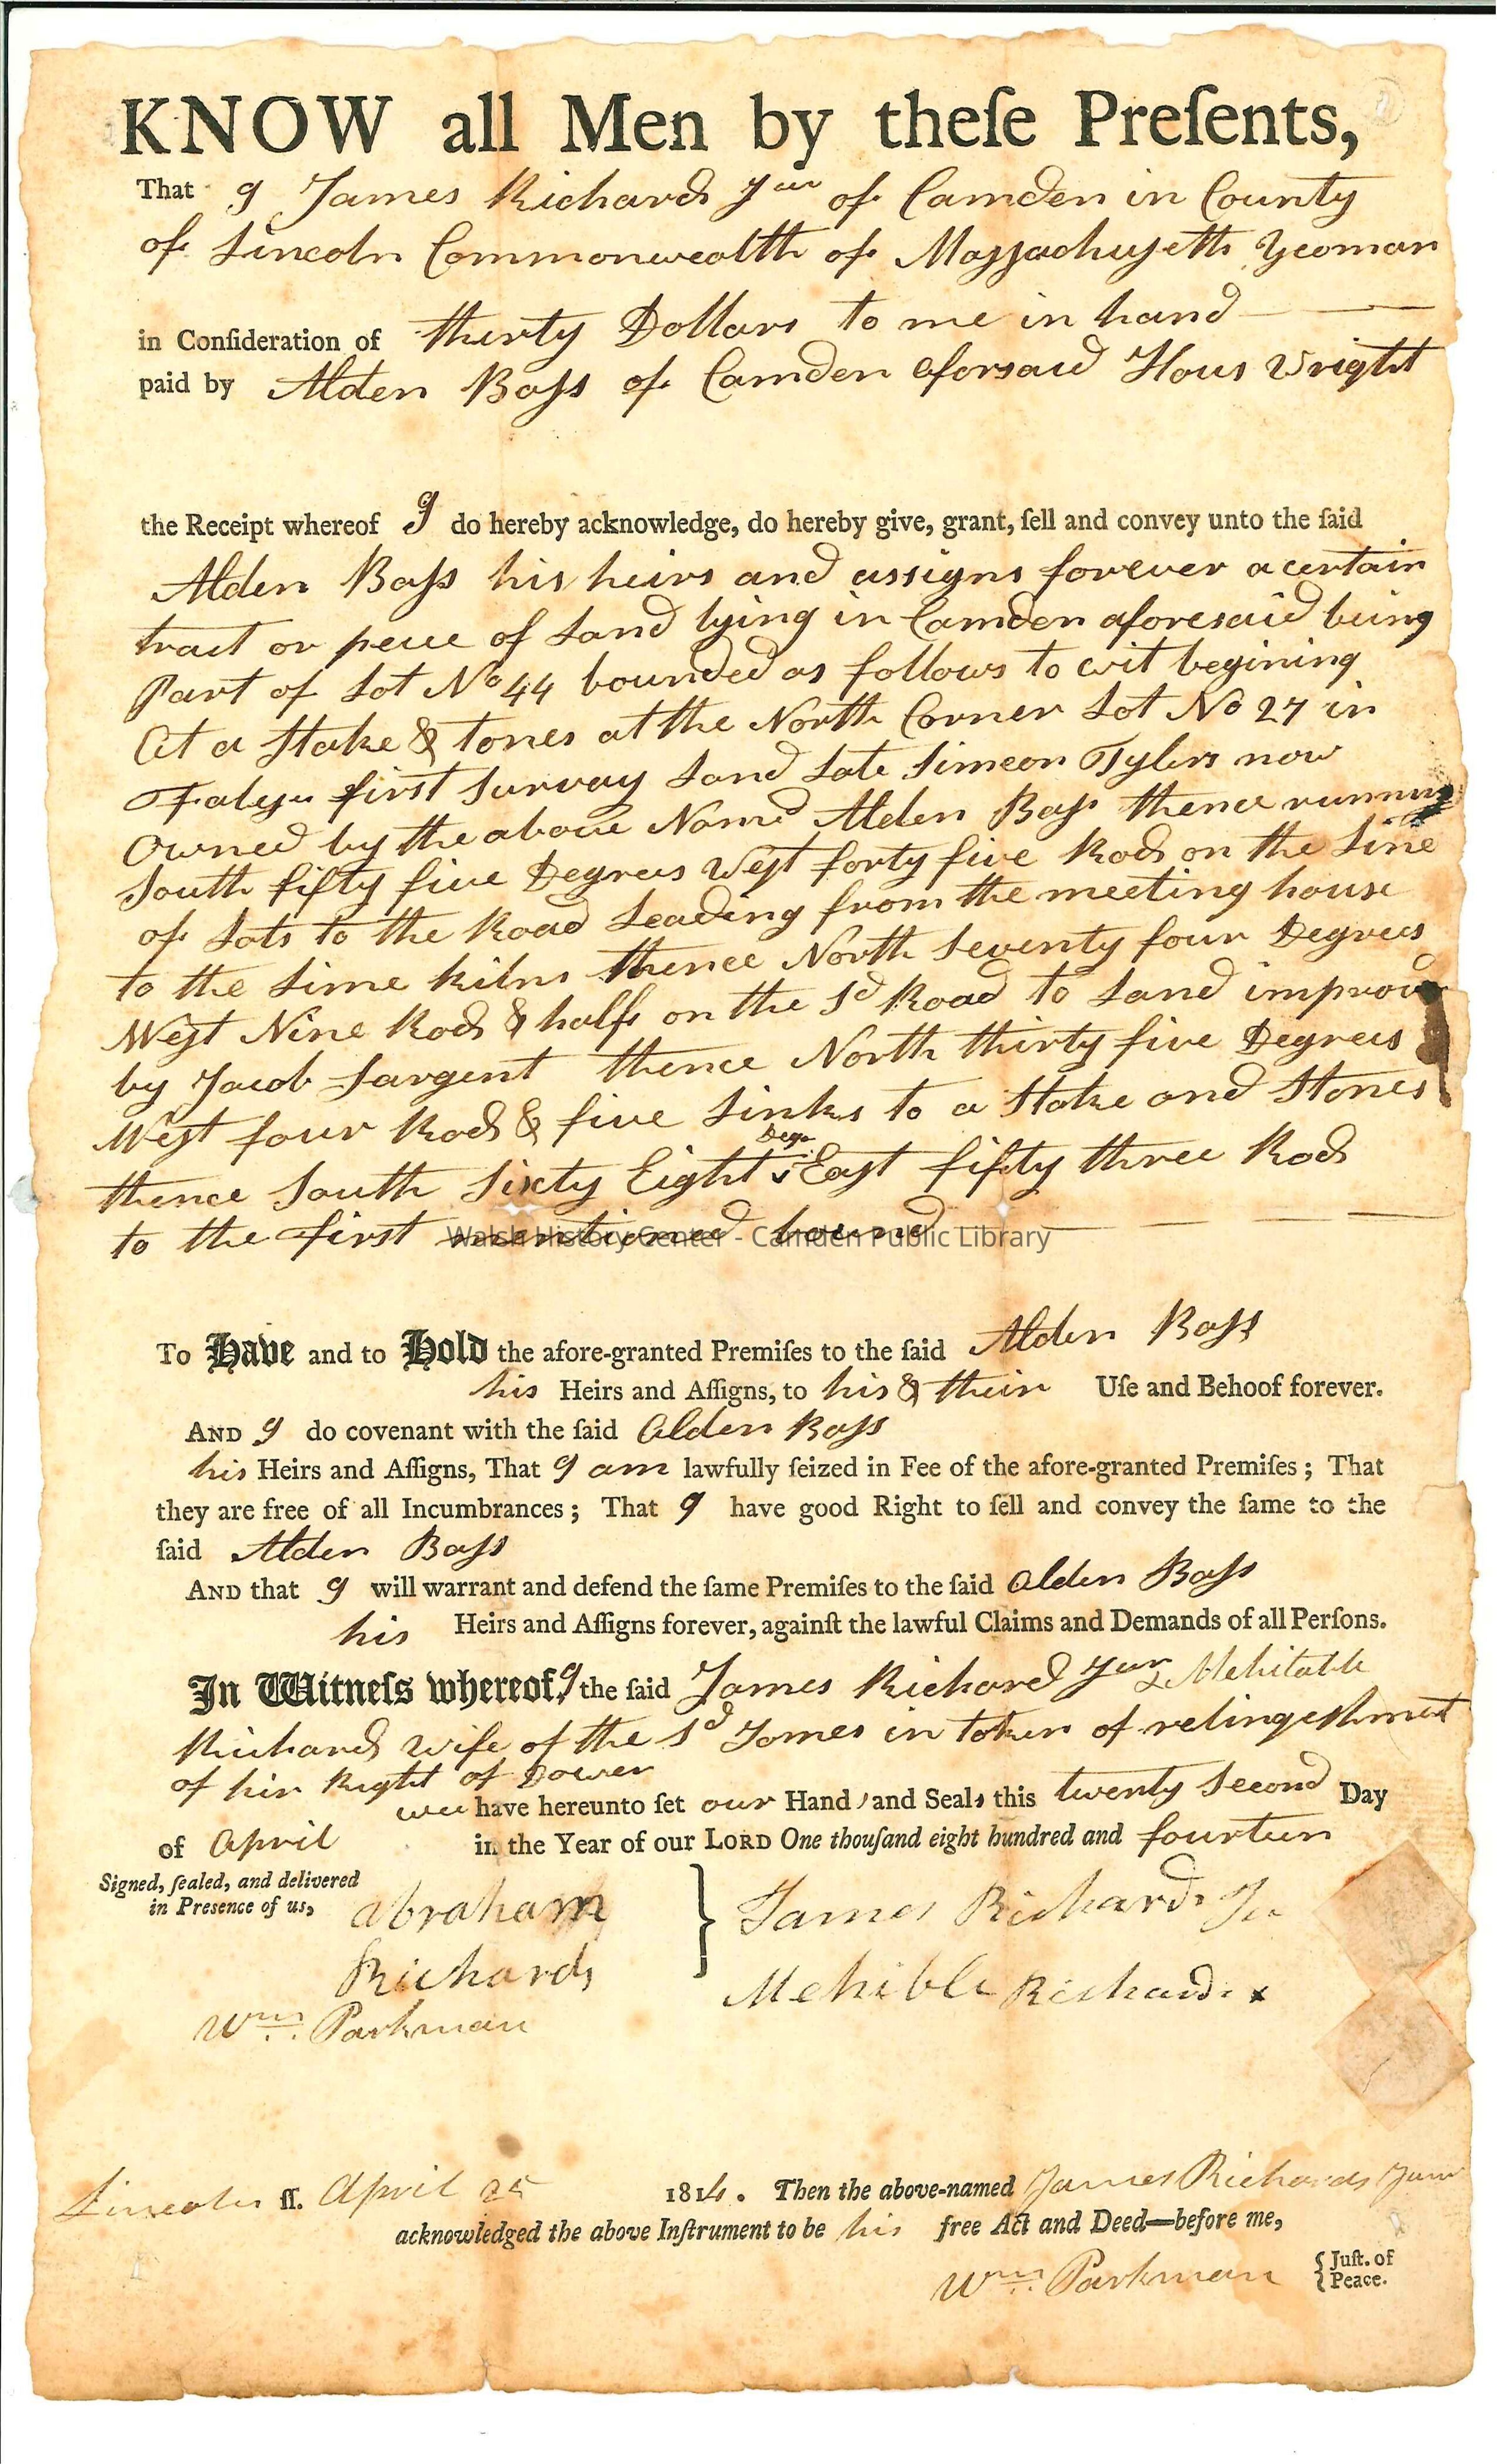 KNOW all Men by theſe Preſents,
That I James Richards Jun of Camden in County
of Lincoln Commonwealth of Massachusetts Yeoman
in Conſideration of thirty Dollars to me in hand
paid by Alden Bass of Camden aforsaid Hous Wright
the Receipt whereof I do hereby acknowledge, do hereby give, grant, ſell and convey unto the ſaid
Alden Bass his heirs and assigns forever a certain
tract or peice of Land lying in Camden aforesaid being
Part of Lot No 44 bounded as follows to wit begining
At a Stake & Stones at the North Corner Lot No 27 in
first Survay Land Late Simeon Tylers now
Owned by the above Namd Alden Bass thence running
South fifty five Degrees West forty five Rods on the Line
of Lots to the Road Leading from the meeting house
to the Lime kilns thence North Seventy four Degrees
West Nine Rods & half on the sd Road to Land improvd
by Jacob Sargent thence North thirty five Degrees
West four Rods & five Links to a Stake and Stones
thence South Sixty Eight Degs East fifty three Rods
to the first mentioned bound
Walsh History Center - Camden Public Library
To Have and to Hold the afore-granted Premiſes to the ſaid Alden Bass
his Heirs and Aſſigns, to his & their Uſe and Behoof forever.
AND I do covenant with the ſaid Alden Bass
his Heirs and Aſſigns, That I am lawfully ſeized in Fee of the afore-granted Premiſes; That
they are free of all Incumbrances; That I have good Right to ſell and convey the ſame to the
ſaid Alden Bass
AND that I will warrant and defend the ſame Premiſes to the ſaid Alden Bass
his Heirs and Aſſigns forever, againſt the lawful Claims and Demands of all Perſons.
In Witneſs whereof, I the ſaid James Richard Jun & Mehitable
Richards wife of the sd James in token of relinqeshment
of hir Right of Dower
wee have hereunto ſet our Hands and Seals this twenty Second Day
of April in the Year of our LORD One thouſand eight hundred and fourteen
Signed, ſealed, and delivered
in Presence of us,
Abraham
Richards
Wm. Parkman
James Richards Ju
Mehible Richards x
Lincoln ſſ. April 25 1814. Then the above-named James Richards Junr
acknowledged the above Inſtrument to be his free Act and Deed—before me,
Wm. Parkman { Juſt. of
Peace.